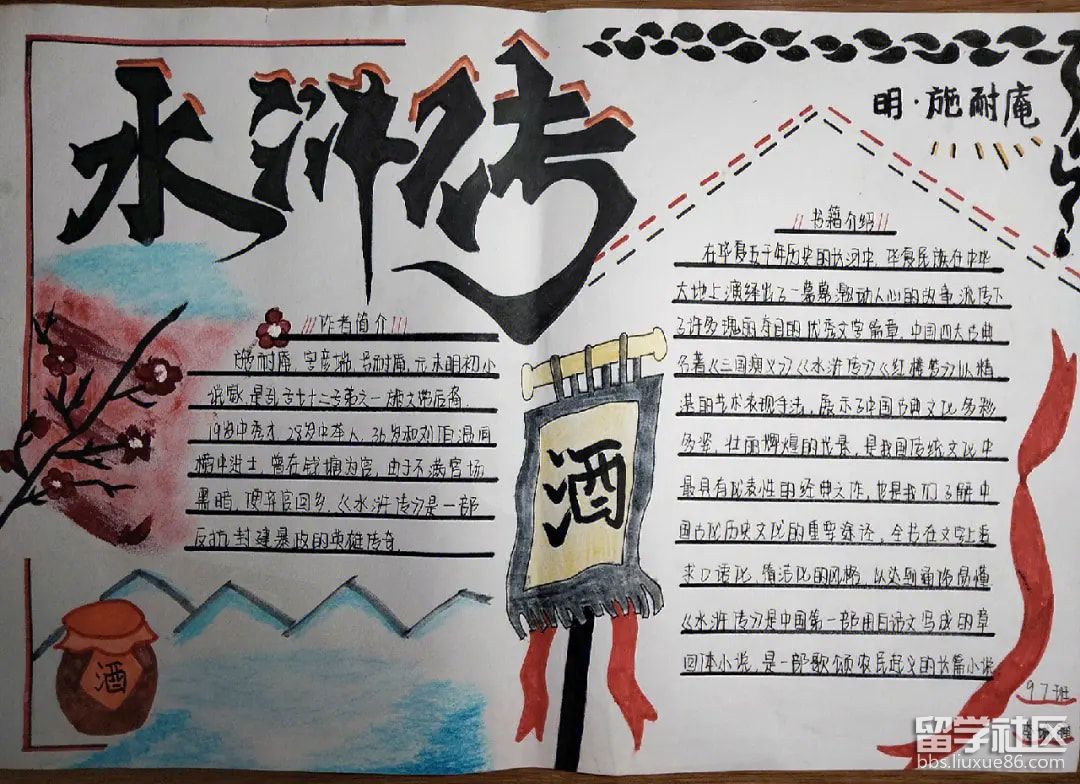 水浒传
明·施耐庵
作者简介
施耐庵,字彦端,号耐庵,元末明初小
说家,是孔子七十二弟子之一施之常后裔,
19岁中秀才,28岁中举人,36岁和刘伯温同
榜中进士,曾在钱塘为官,由于不满官场
黑暗,便辞官回乡,《水浒传》是一部
反抗封建暴政的英雄传奇
酒
酒
书籍介绍
在华夏五千年历史的长河中,华夏民族在中华
大地上演绎出了一幕幕激动人心的故事,流传下
了许多瑰丽夺目的优秀文字篇章,中国四大古典
名著《三国演义》《水浒传》《红楼梦》以精
湛的艺术表现手法,展示了中国古典文化多彩
多姿,壮丽辉煌的优景,是我国传统文化中
最具有代表性的经典之作,也是我们了解中
国古代历史文化的重要途径,全书在文字上追
求口语化,简洁化的风格,以达到通俗易懂
《水浒传》是中国第一部用白话文写成的章
回体小说,是一部歌颂农民起义的长篇小说
97班
留学社区
bbs.liuxue86.com